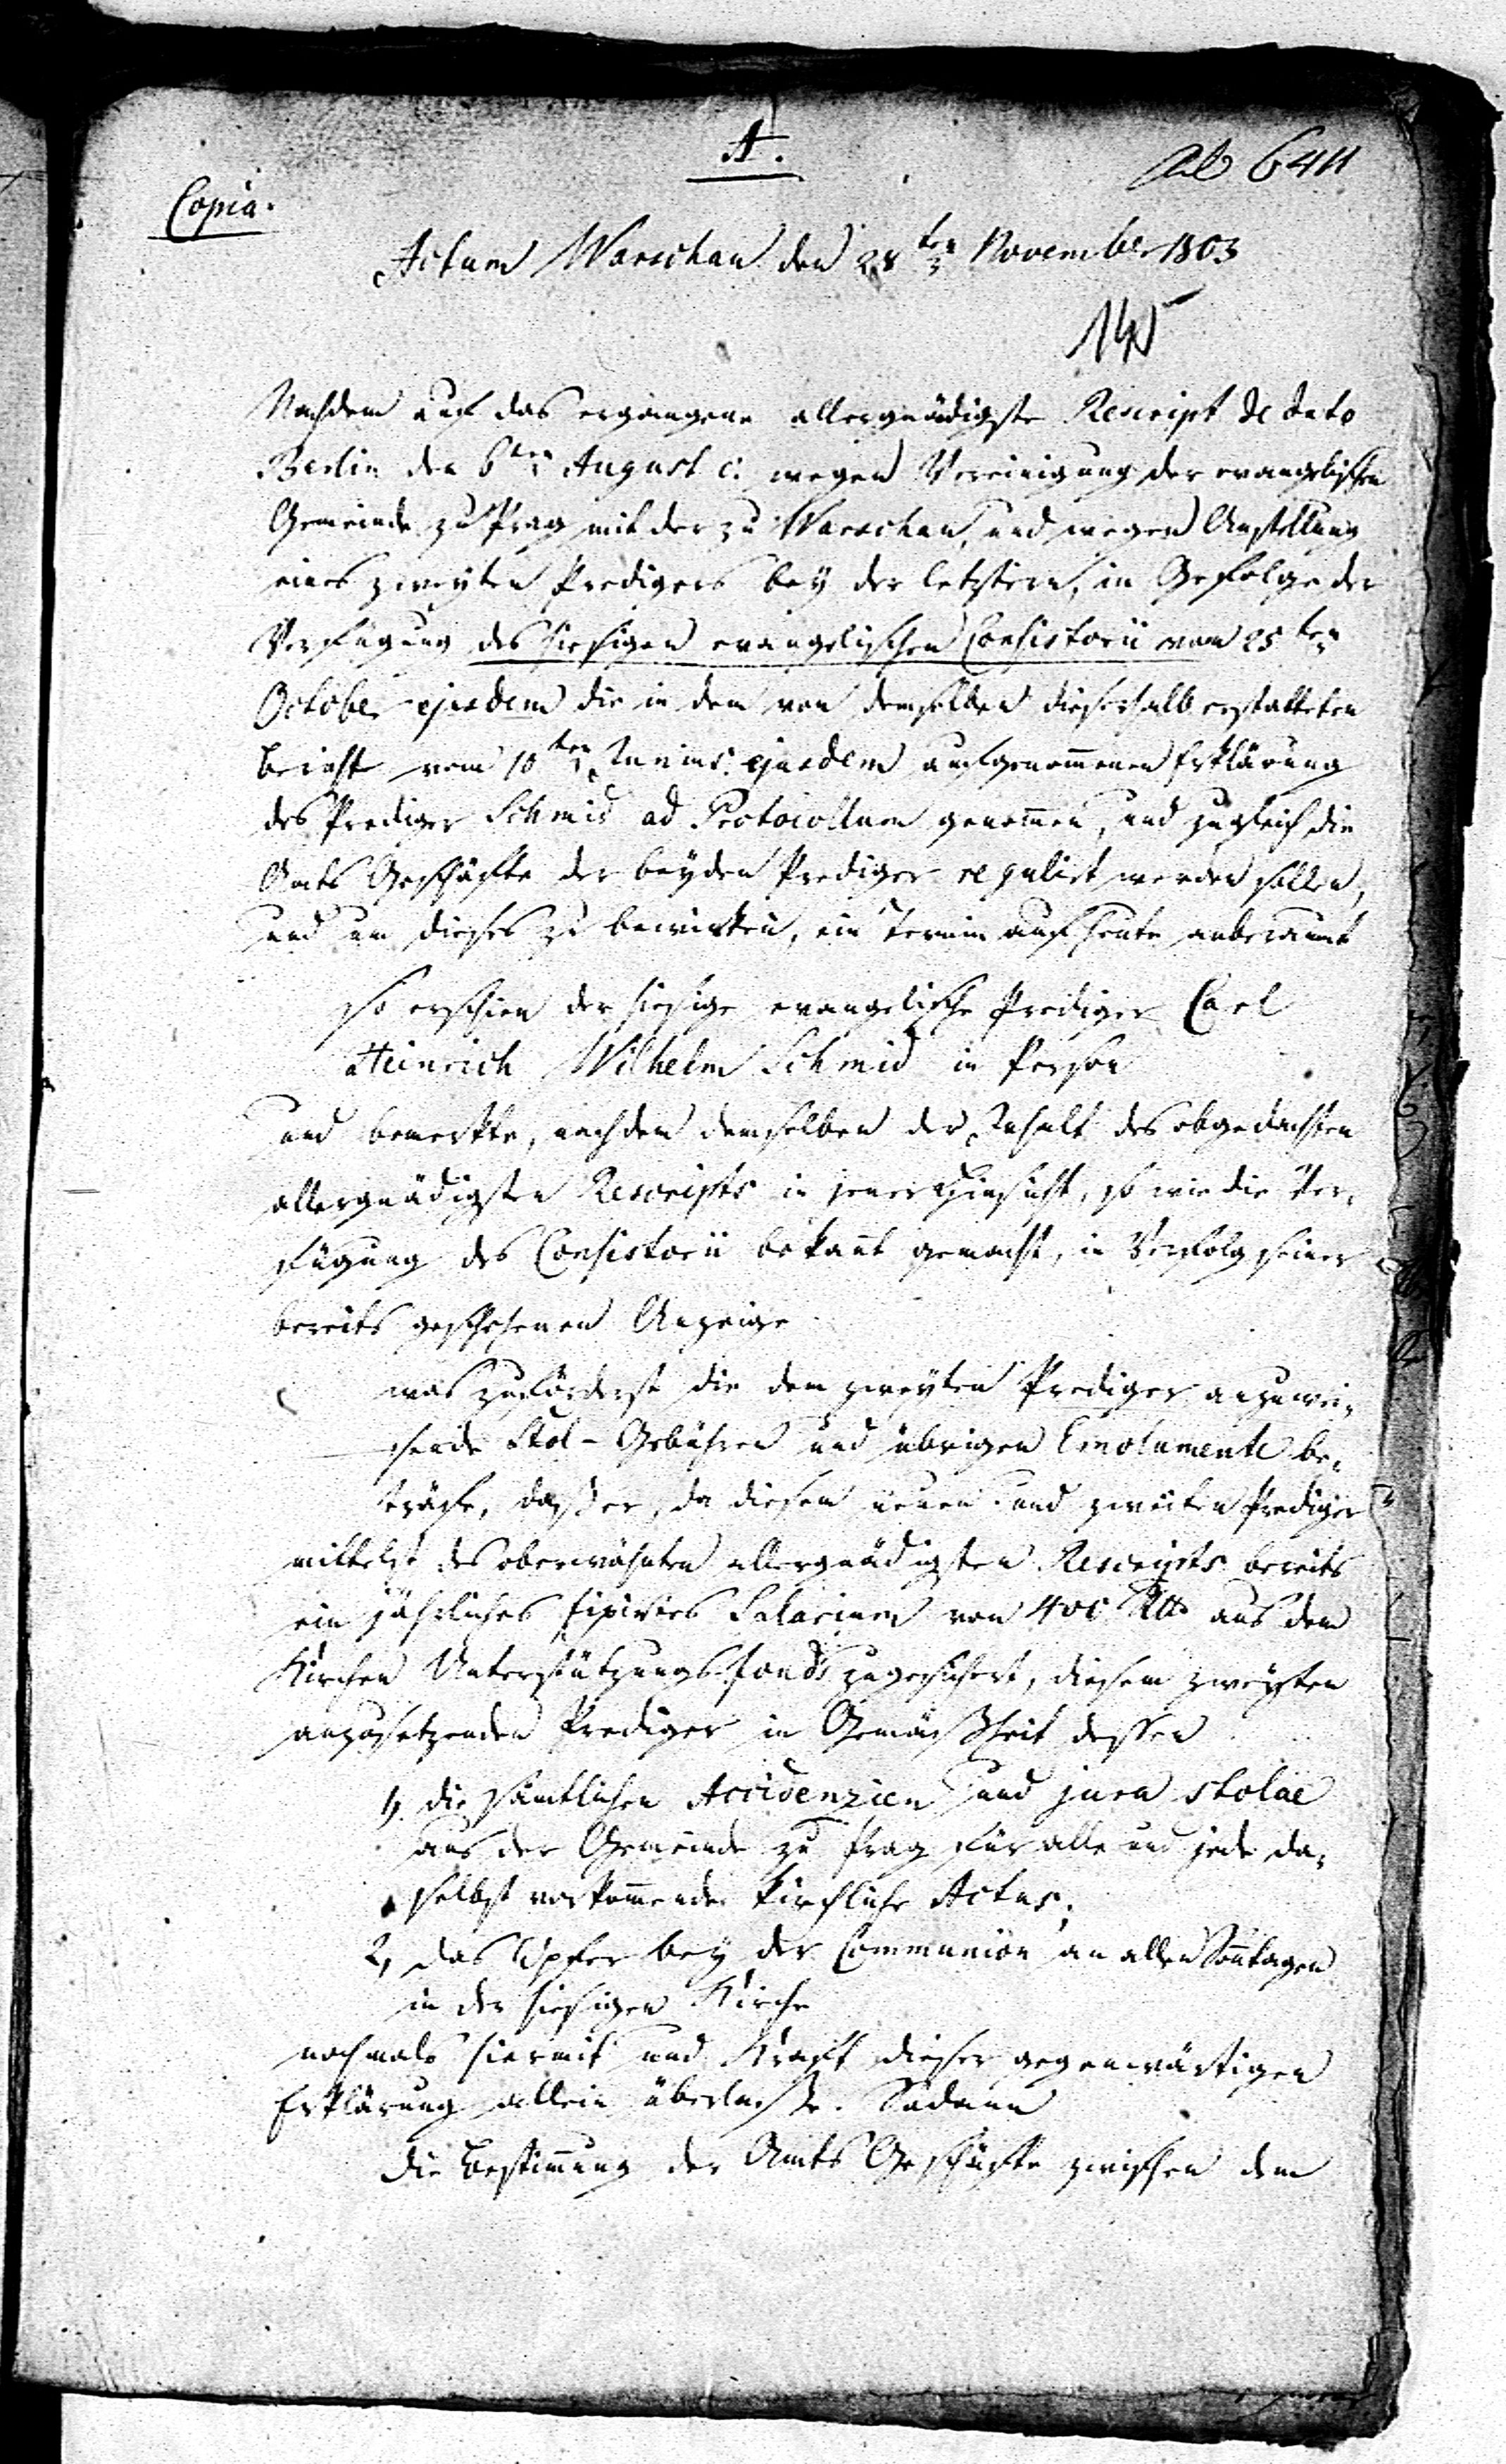 A.
ad 6411
Copia.
Actum Warschau den 28ten November 1803
145
Nachdem auf das ergangene allergnädigste Rescript de dato
Berlin den 6ten August c. wegen Vereinigung der evangelischen
Gemeinde zu Prag mit der zu Warschau, und wegen Anstellung
eines zweyten Predigers bey der letztern, in Gefolge der
Verfügung des hiesigen evangelischen Consistorii vom 25ten
October ejusdem die in dem von demselben dieserhalb erstatteten
Bericht vom 10ten Junius ejusdem aufgenommenen Erklärung
des Prediger Schmid ad Protocollum genommen, und zugleich die
Amts Geschäfte der beyden Prediger regulirt werden sollen,
und um dieses zu bewirken, ein Termin auf heute anberaumt
so erschien der hiesige evangelische Prediger Carl
Heinrich Wilhelm Schmid in Person
und bemerkte, nachdem demselben der Inhalt des obgedachten
allergnädigsten Rescripts in jener Hinsicht, so wie die Ver-
fügung des Consistorii bekannt gemacht, in Verfolg seiner
bereits geschehenen Anzeige
was zuförderst die dem zweyten Prediger anzuwei-
sende Stol-Gebühren und übrigen Emolumente be-
träfe, daß er, da diesem neuen und zweiten Prediger
mittelst des oberwähnten allergnädigsten Rescripts bereits
ein jährliches fixirtes Salarium von 400 Rtl. aus dem
Kirchen Unterstützungs-fonds zugesichert, diesem zweyten
anzusetzenden Prediger in Gemäßheit dessen
1, die sämtlichen Accidenzien und jura stolae
aus der Gemeinde zu Prag für alle und jede da-
selbst vorkommende kirchliche Actus;
2, das Opfer bey der Communion an allen Sontagen
in der hiesigen Kirche
nochmals hiermit und Kraft dieser gegenwärtigen
Erklärung allein überlasse. Sodann
die Bestimmung der Amts Geschäfte zwischen dem